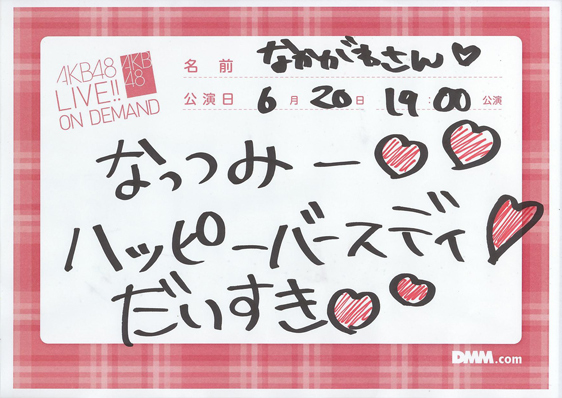 AKB48
LIVE!!
ON DEMAND
AKB
48
名前 なかがわさん♡
公演日 6月20日 19:00公演
なっつみー♡♡
ハッピーバースディ♡
だいすき♡♡
DMM.com